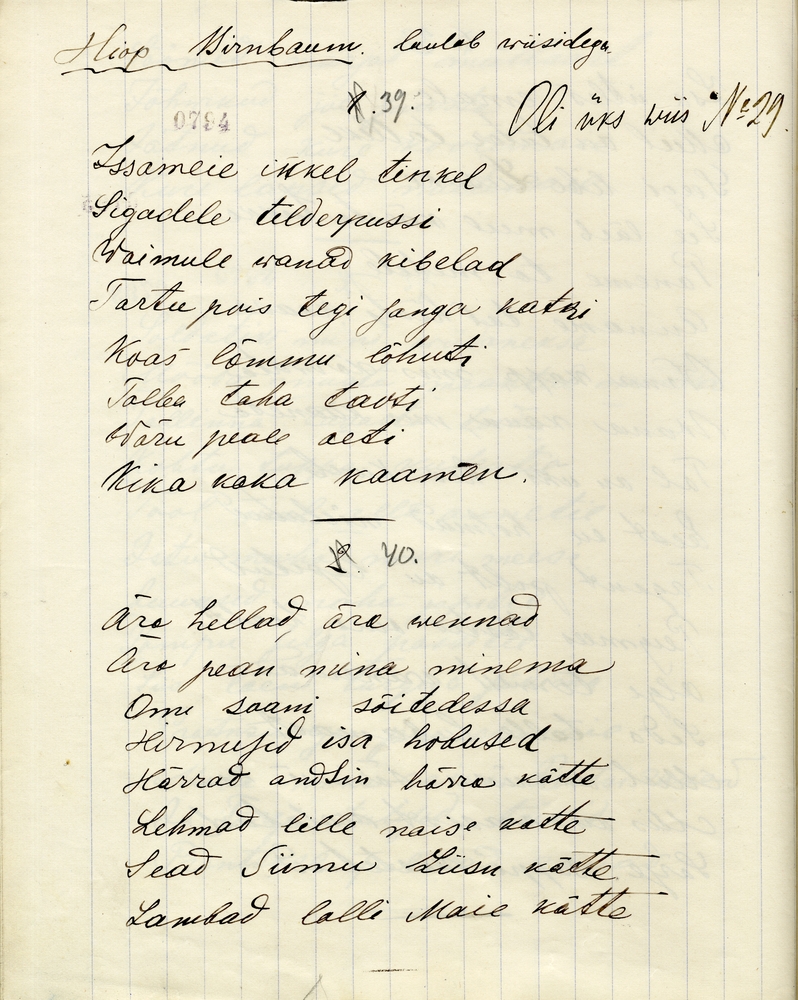 Hiop Birnbaum. laulab wiisidega.
39.
Oli üks wiis № 29.
0794
Issameie ikkel tinkel
Sigadele tilderpussi
Waimule wanad kibelad
Tartu pois tegi janga katki
Koas lõmmu lõhuti
Talba taha taoti
Wäru peale aeti
Kika kaka kaamen.
40.
Ära hellad, ära wennad
Ära pean nüna minema
Omu saani sõitedessa
Hirnusid isa hobused
Härrad andsin härra kätte
Lehmad lille naise kätte
Sead Siimu Liisu kätte
Lambad lalli Maie kätte